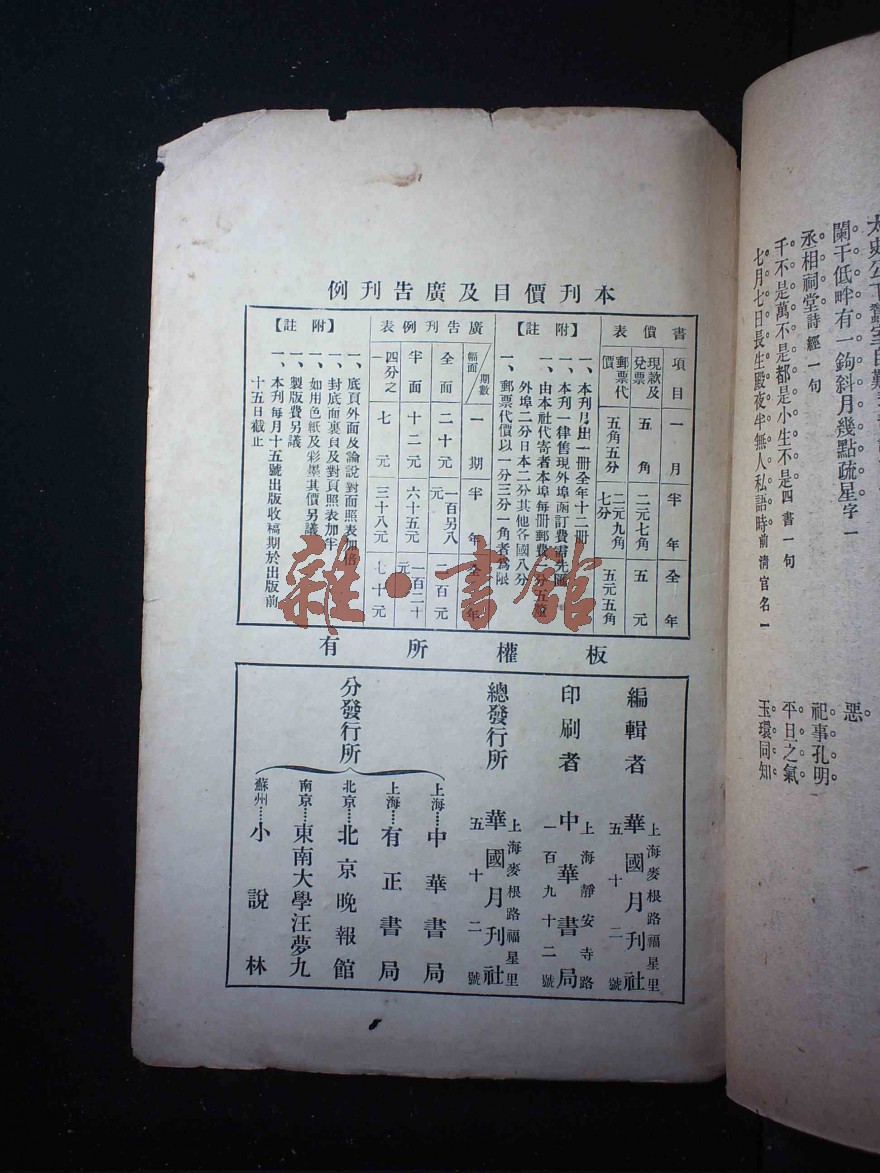 闌干低畔有一鉤斜月幾點疏星字一
丞相祠堂詩經一句
千不是萬不是都是小生不是四書一句
七月七日長生殿夜半無人私語時前清官名一
惡
祀事孔明
平旦之氣
玉環同知
本刊價目及廣告刊例
書價表
項目 一月 半年 全年
現款及兌票 五角 二元七角 五元
郵票代價 五角五分 二元九角七分 五元五角
【附註】
一、本刊月出一冊全年十二冊
一、本刊一律售現外埠函訂費需先匯
一、由本社代寄者本埠每冊郵費一分五
外埠二分日本二分其他各國八分
一、郵票代價以一分三分一角者為限
廣告刊例表
幅面/期數 一期 半年 全年
全面 二十元 一百另八元 二百元
半面 十二元 六十五元 一百二十元
四分之一 七元 三十八元 七十元
【附註】
一、底頁外面及論說對面照表加倍
一、封底面裏頁及對頁照表加半
一、如用色紙及彩墨其價另議
一、製版費另議
一、本刊每月十五號出版收稿期於出版前
十五日截止
雜·書館
板權所有
編輯者
上海麥根路福星里
華國月刊社
五十二號
印刷者
上海靜安寺路
中華書局
一百九十二號
總發行所
上海麥根路福星里
華國月刊社
五十二號
分發行所
上海……中華書局
上海……有正書局
北京……北京晚報館
南京……東南大學汪夢九
蘇州……小說林